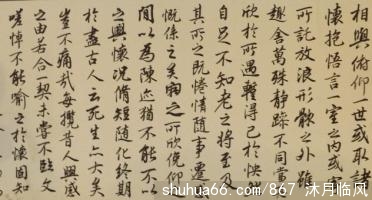 相與俯仰一世或取諸
懷抱悟言一室之內或
所託放浪形骸之外雖
趣舍萬殊靜躁不同當
欣於所遇暫得於己快
自足不知老之將至及
其所之既惓情隨事遷
慨係之矣向之所欣俛仰
間以為陳迹猶不能不以
之興懷況脩短隨化終期
於盡古人云死生亦大矣
豈不痛哉每攬昔人興感
之由若合一契未嘗不臨文
嗟悼不能喻之於懷固知
shuhua66.com/867 沐月临风